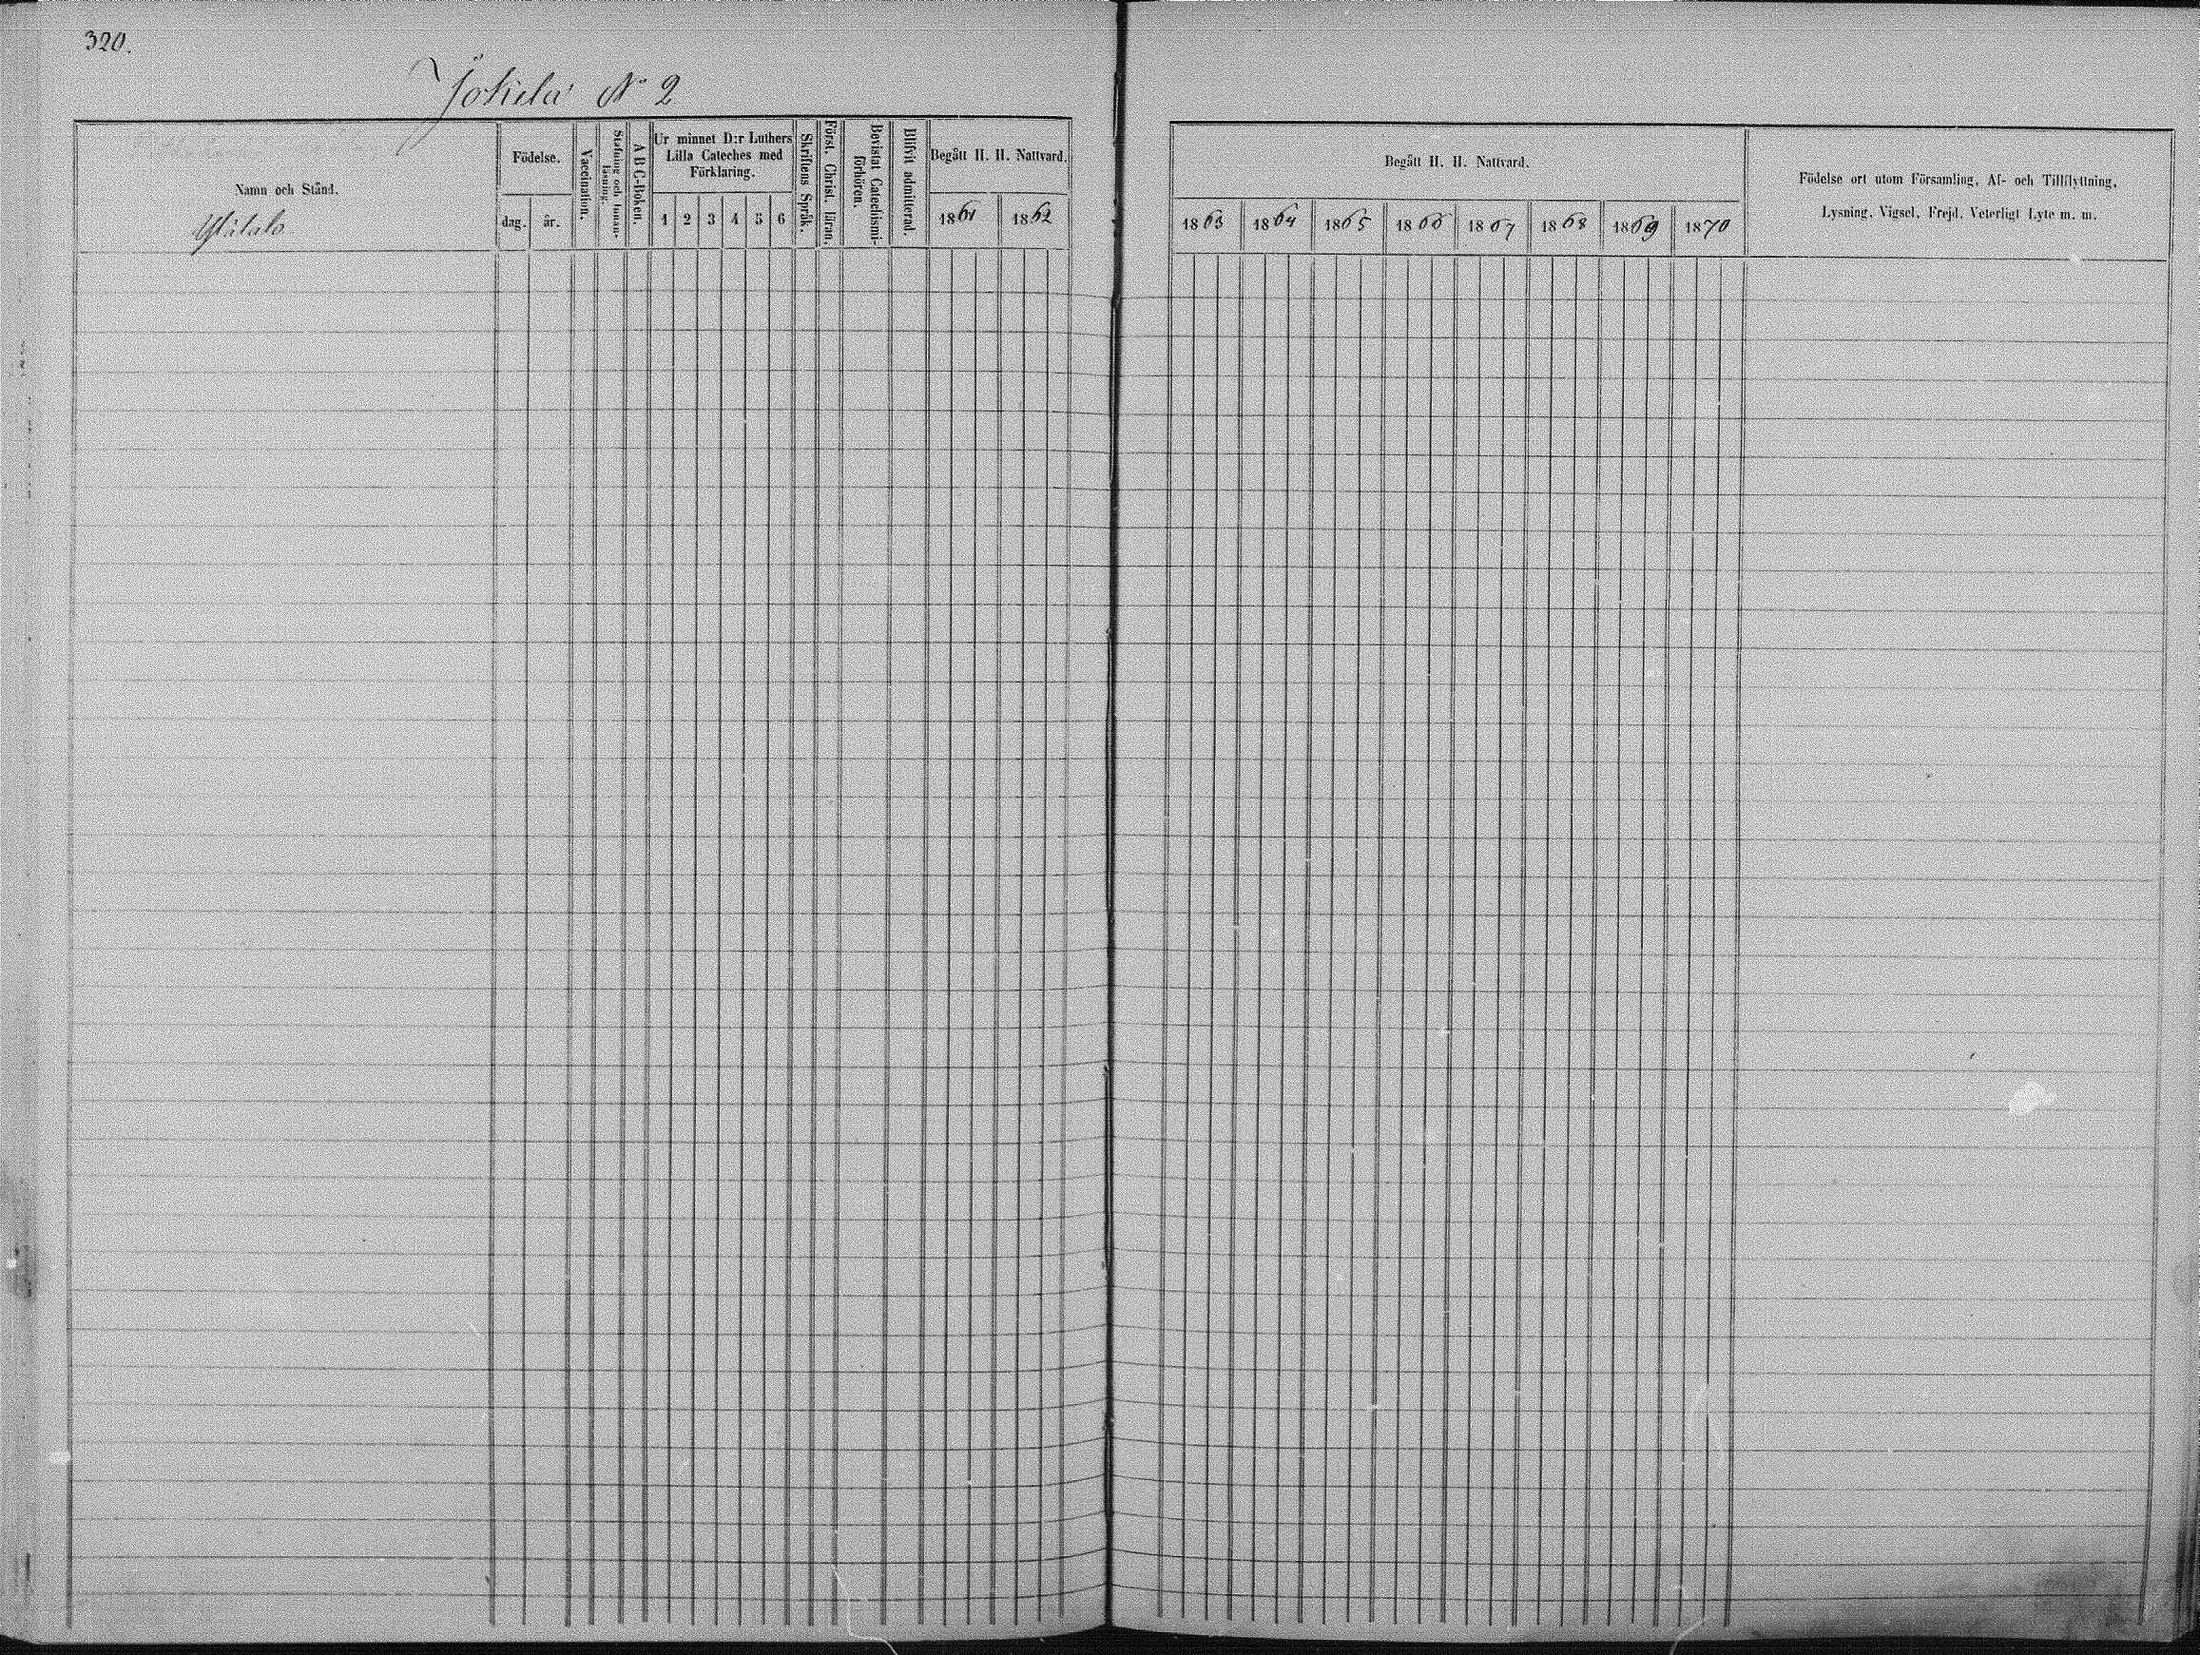 320.
Jokela N° 2
Namn och Stånd.
Ylitalo
Födelse.
dag. år.
Vaccination.
Stafning och Innan-läsning.
A B C-Boken.
Ur minnet D:r Luthers
Lilla Cateches med
Förklaring.
1 2 3 4 5 6
Skriftens Språk.
Först. Christ. läran.
Bevistat Catechismi-
förhören.
Blifvit admitterad.
Begått H. H. Nattvard.
1861 1862
Begått H. H. Nattvard.
1863 1864 1865 1866 1867 1868 1869 1870
Födelse ort utom Församling, Af- och Tillflyttning,
Lysning, Vigsel, Frejd, Veterligt Lyte m. m.